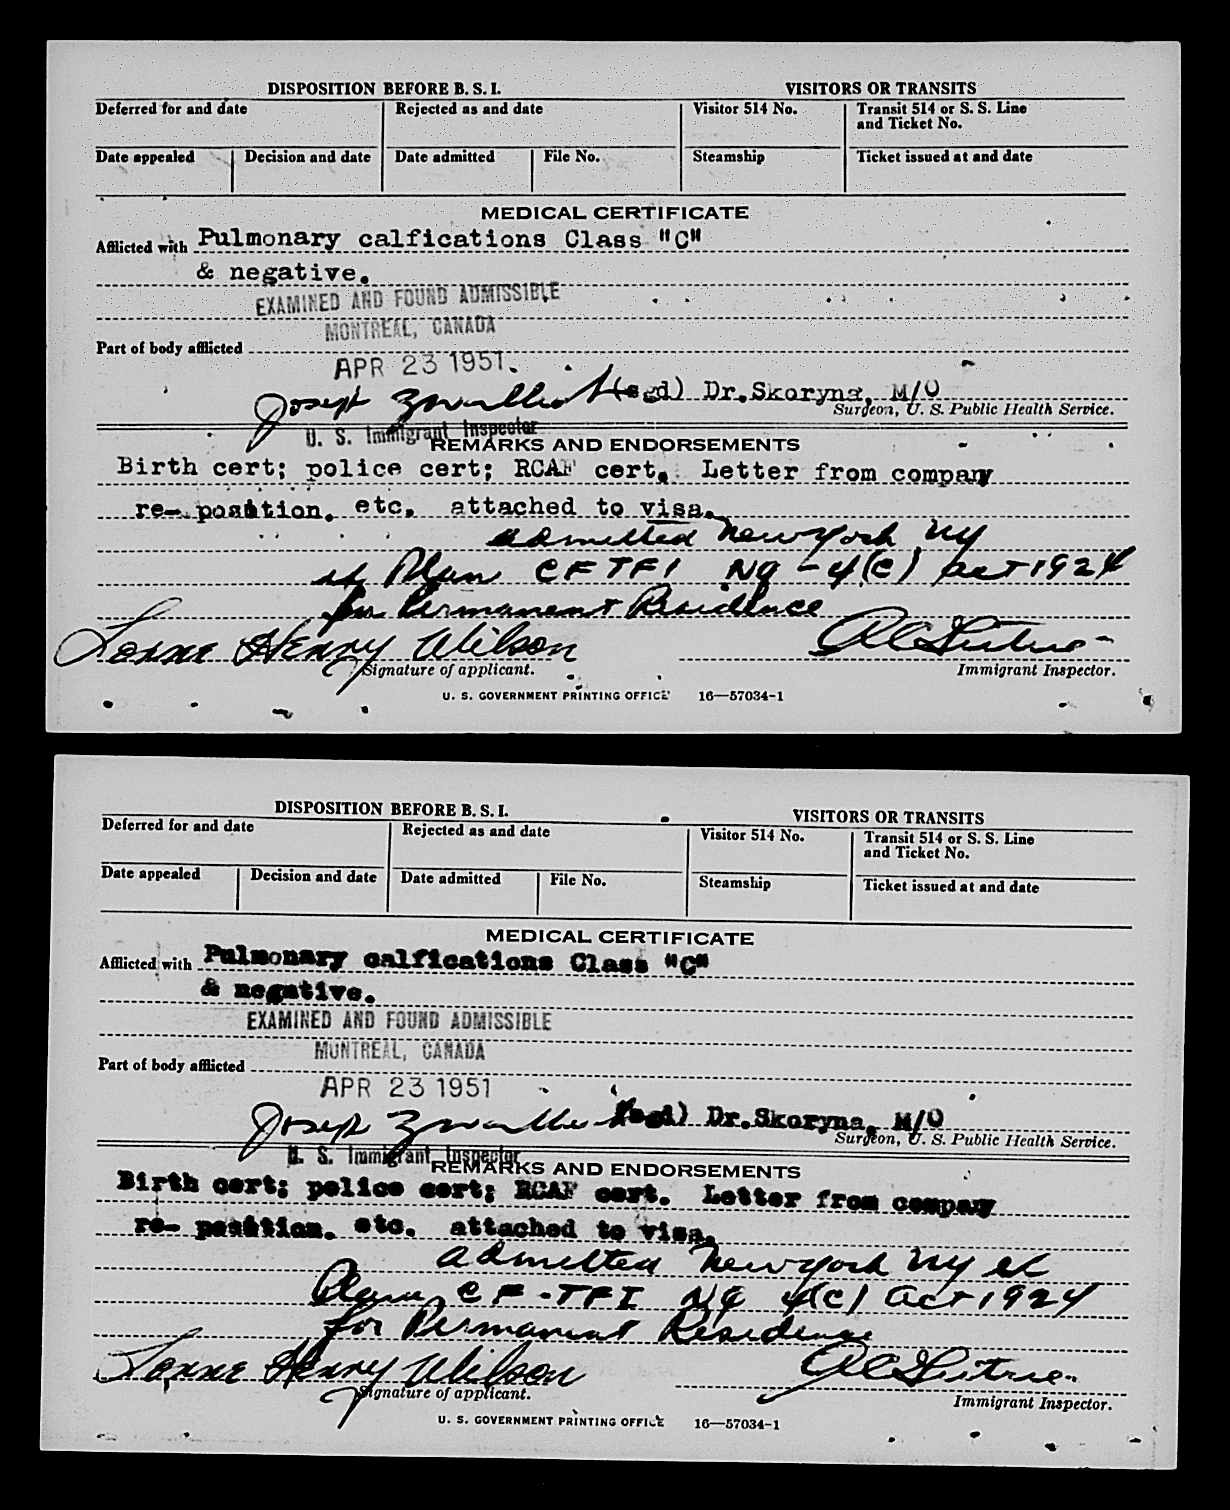 DISPOSITION BEFORE B. S. I. VISITORS OR TRANSITS
Deferred for and date Rejected as and date Visitor 514 No. Transit 514 or S. S. Line
and Ticket No.
Date appealed Decision and date Date admitted File No. Steamship Ticket issued at and date
MEDICAL CERTIFICATE
Afflicted with Pulmonary calfications Class "C"
& negative.
EXAMINED AND FOUND ADMISSIBLE
MONTREAL, CANADA
Part of body afflicted
APR 23 1951
Joseph (sgd) Dr.Skoryna, M/O
Surgeon, U. S. Public Health Service.
U. S. Immigrant Inspector
REMARKS AND ENDORSEMENTS
Birth cert; police cert; RCAF cert. Letter from company
re- position. etc. attached to visa.
admitted New York NY
Plane CF TFI NQ - 4(c) Act 1924
for Permanent Residence
Lorne Henry Wilson
Signature of applicant. Immigrant Inspector.
U. S. GOVERNMENT PRINTING OFFICE 16—57034-1
DISPOSITION BEFORE B. S. I. VISITORS OR TRANSITS
Deferred for and date Rejected as and date Visitor 514 No. Transit 514 or S. S. Line
and Ticket No.
Date appealed Decision and date Date admitted File No. Steamship Ticket issued at and date
MEDICAL CERTIFICATE
Afflicted with Pulmonary calfications Class "C"
& negative.
EXAMINED AND FOUND ADMISSIBLE
MONTREAL, CANADA
Part of body afflicted
APR 23 1951
Joseph (sgd) Dr.Skoryna, M/O
Surgeon, U. S. Public Health Service.
U. S. Immigrant Inspector
REMARKS AND ENDORSEMENTS
Birth cert; police cert; RCAF cert. Letter from company
re- position. etc. attached to visa.
admitted New York NY
Plane CF-TFI NQ 4(c) Act 1924
for Permanent Residence
Lorne Henry Wilson
Signature of applicant. Immigrant Inspector.
U. S. GOVERNMENT PRINTING OFFICE 16—57034-1